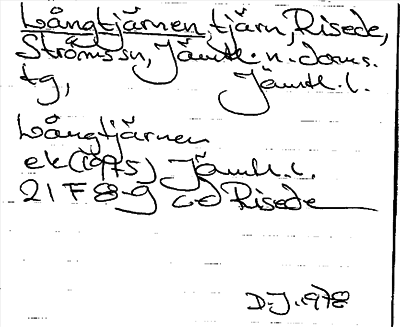 Långtjärnen, tjärn, Risede,
Ströms sn, Jämtl. n. doms.
tg, Jämtl. l.
Långtjärnen
ek (1975) Jämtl. l.
21 F 8-9 cd Risede
D.J. 1978